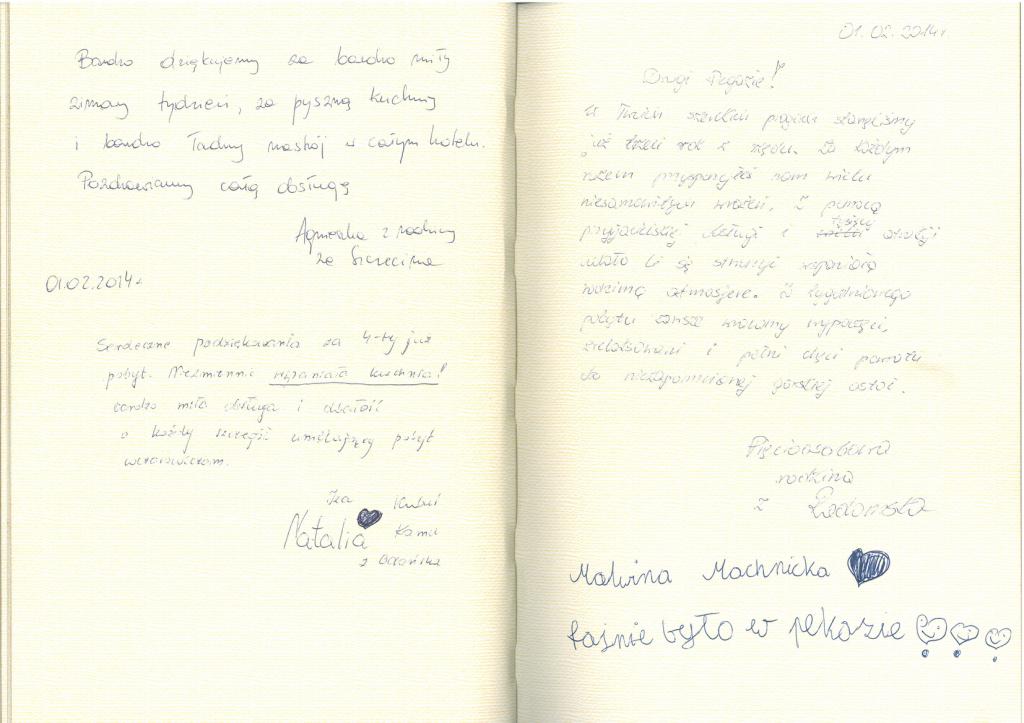 Bardzo dziękujemy za bardzo miły
zimowy tydzień, za pyszną kuchnię
i bardzo ładny nastrój w całym hotelu.
Pozdrawiamy całą obsługę
Agnieszka z rodziny
ze Szczecina
01.02.2014r
Serdeczne podziękowania za 4-ty już
pobyt. Niezmiennie wspaniała kuchnia!
bardzo miła obsługa i dbałość
o każdy szczegół umilający pobyt
wczasowiczom.
Iza
Natalia
Kamil
z Gdańska
01.02.2014r.
Drogi Pegazie!
W Twoim siedlisku stanęliśmy
już trzeci rok z rzędu. Za każdym
razem przysporzyłeś nam wielu
niesamowitych wrażeń. Z pomocą
przyjacielskiej obsługi i tysięcy atrakcji
udało Ci się stworzyć wspaniałą
rodzinną atmosferę. Z tygodniowego
pobytu zawsze wracamy wypoczęci,
zrelaksowani i pełni chęci powrotu
do niezapomnianej górskiej ostoi.
Pięcioosobowa
rodzina
z Radomska
Malwina Machnicka
fajnie było w pekazie